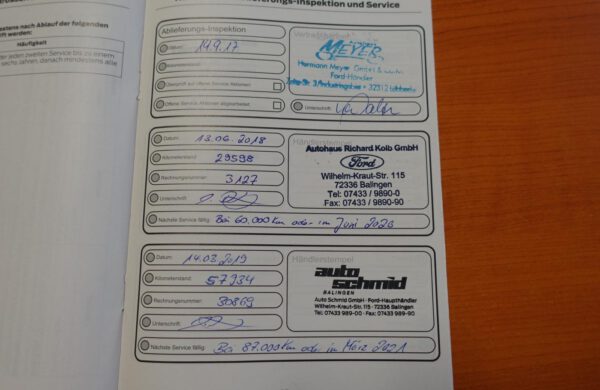 stens nach Ablauf der folgenden
ft werden:
Häufigkeit
er jeden zweiten Service bis zu einem
sechs Jahren, danach mindestens alle
Inspektion und Service
Ablieferungs-Inspektion
Datum: 14.9.17
Kilometerstand:
Überprüft auf offene Service Aktionen
Offene Service Aktionen abgearbeitet
MEYER
Hermann Meyer GmbH &
Ford-Händler
32312 Lübbecke
Unterschrift:
Datum: 13.06.2018
Kilometerstand: 29598
Rechnungsnummer: 3127
Unterschrift:
Händlerstempel
Autohaus Richard Kolb GmbH
Ford
Wilhelm-Kraut-Str. 115
72336 Balingen
Tel: 07433 / 9890-0
Fax: 07433 / 9890-90
Nächste Service fällig: Bei 60.000 Km oder im Juni 2020
Datum: 14.03.2019
Kilometerstand: 57934
Rechnungsnummer: 30869
Unterschrift:
Händlerstempel
auto
schmid
BALINGEN
Auto Schmid GmbH · Ford-Haupthändler
Wilhelm-Kraut-Str. 115 · 72336 Balingen
Tel. 07433 989-00 · Fax: 07433 989-90
Nächste Service fällig: Bei 87.000 Km oder im März 2021